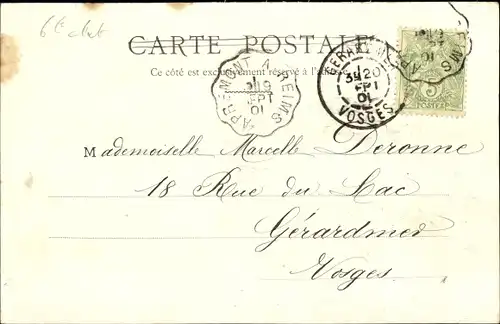 CARTE POSTALE
Ce côté est exclusivement réservé à l'adresse
APREMONT A REIMS
SEPT
01
GERARDMER
3E 20
SEPT
01
VOSGES
Mademoiselle Marcelle Deronne
18 Rue du Lac
Gérardmer
Vosges